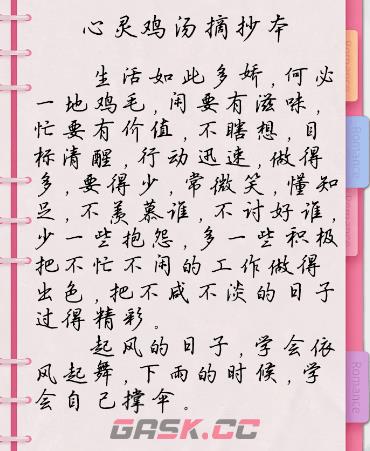 心灵鸡汤摘抄本
生活如此多娇,何必
一地鸡毛,闲要有滋味,
忙要有价值,不瞎想,目
标清醒,行动迅速,做得
多,要得少,常微笑,懂知
足,不羡慕谁,不讨好谁,
少一些抱怨,多一些积极
把不忙不闲的工作做得
出色,把不咸不淡的日子
过得精彩。
起风的日子,学会依
风起舞,下雨的时候,学
会自己撑伞。
Romance
Romance
Romance
Romance
GASK.CC